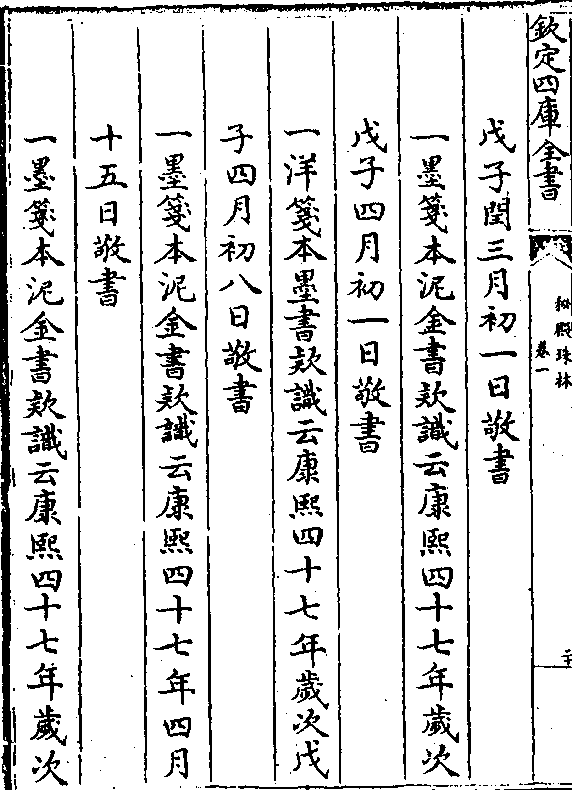 欽定四庫全書
秘殿珠林
卷一
二十
戊子閏三月初一日敬書
一墨箋本泥金書款識云康熙四十七年歲次
戊子四月初一日敬書
一洋箋本墨書款識云康熙四十七年歲次戊
子四月初八日敬書
一墨箋本泥金書款識云康熙四十七年四月
十五日敬書
一墨箋本泥金書款識云康熙四十七年歲次